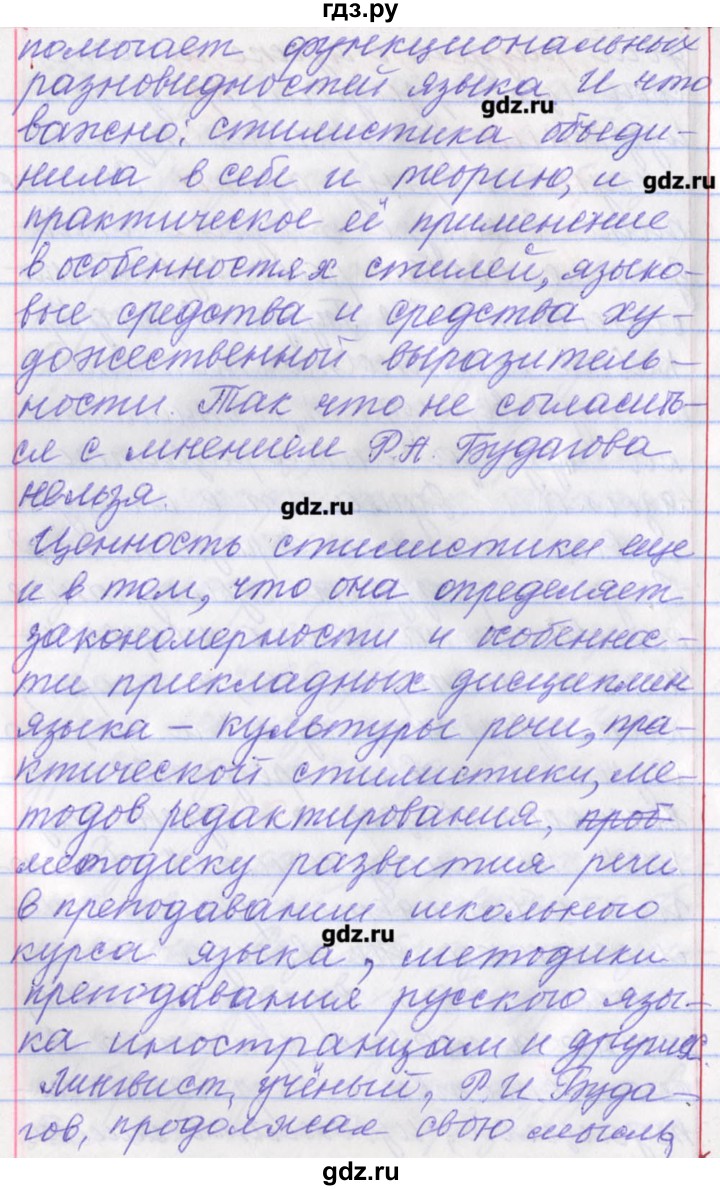 гдз.ру
помогает функциональных
разновидностей языка. И что
gdz.ru
важно: стилистика объеди-
нила в себе и теорию, и
gdz.ru
практическое её применение
в особенностях стилей, языко-
вые средства и средства ху-
дожественной выразитель-
ности. Так что не согласить-
ся с мнением Р.А. Будагова
нельзя.
gdz.ru
Ценность стилистики еще
и в том, что она определяет
закономерности и особеннос-
ти прикладных дисциплин
языка – культуры речи, пра-
ктической стилистики, ме-
тодов редактирования, проб
методику развития речи
в преподавании школьного
gdz.ru
курса языка, методики
преподавания русского язы-
ка иностранцам и других.
Лингвист, учёный, Р.И. Буда-
гов, продолжая свою мысль,
gdz.ru